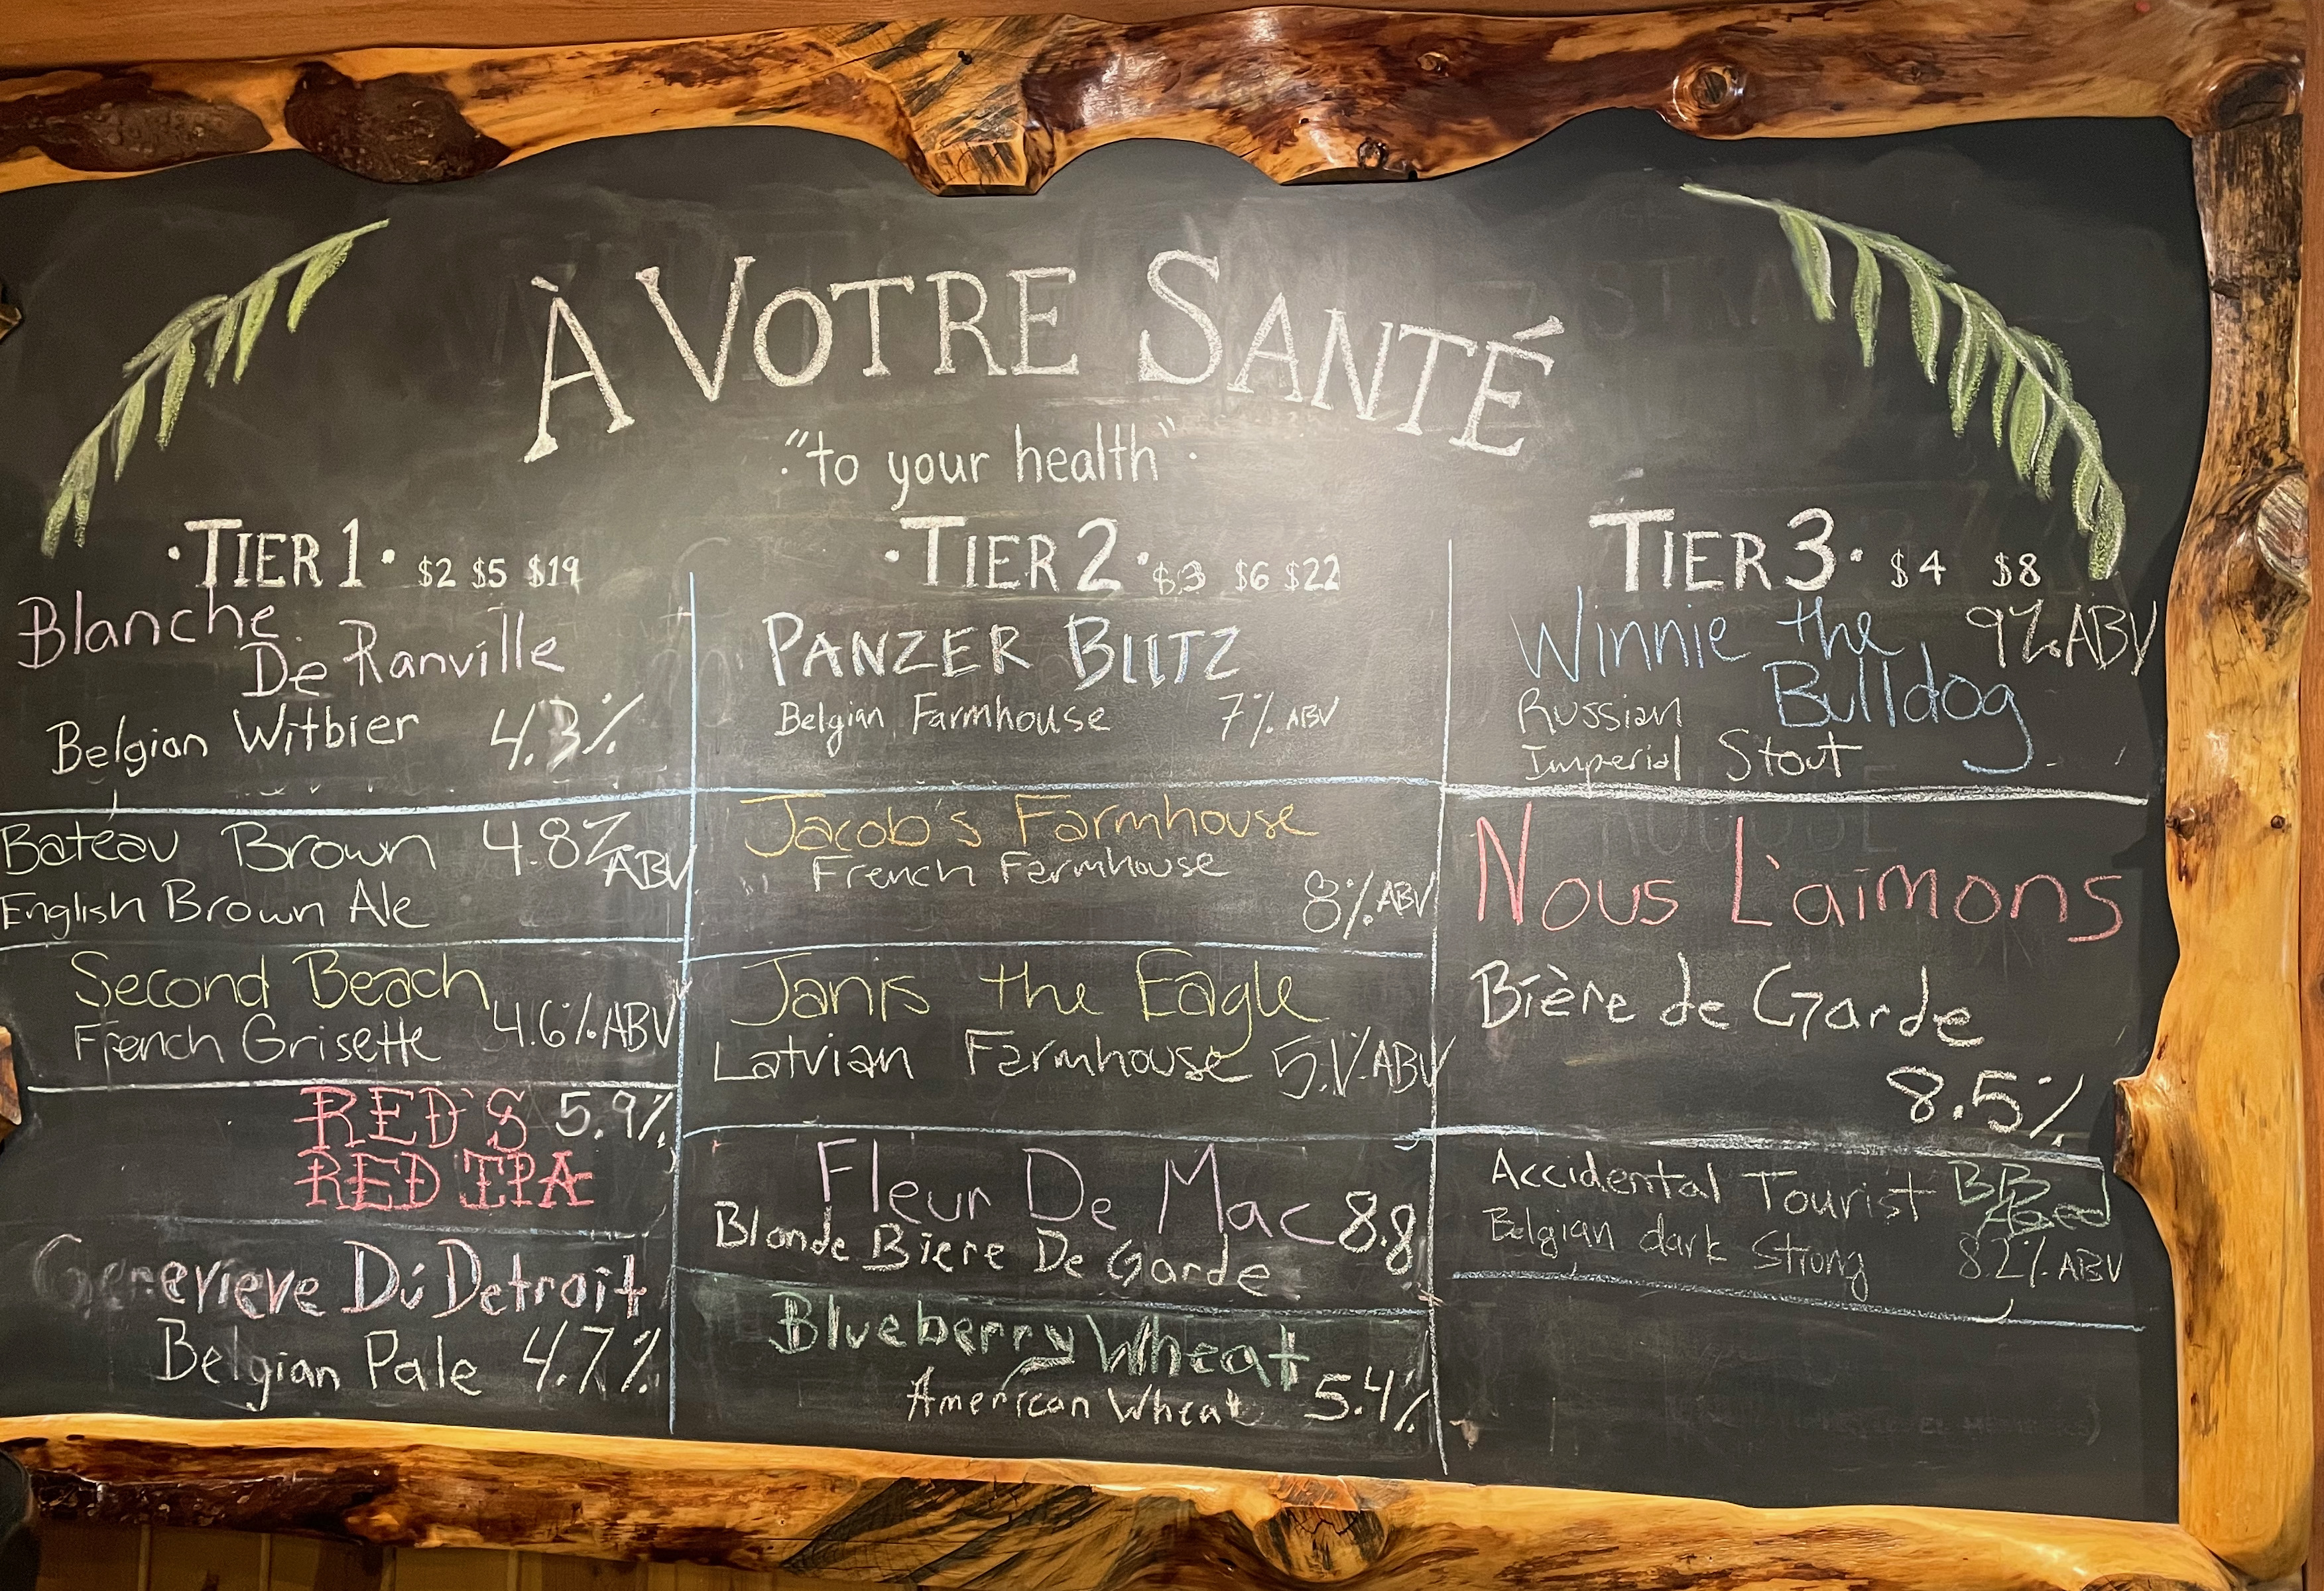 À VOTRE SANTÉ
"to your health"
·TIER 1· $2 $5 $19
Blanche
De Ranville
Belgian Witbier 4.3%
Bateau Brown 4.8%
ABV
English Brown Ale
Second Beach
French Grisette 4.6% ABV
RED'S 5.9%
RED IPA
Genevieve Du Detroit
Belgian Pale 4.7%
·TIER 2· $3 $6 $22
PANZER BLITZ
Belgian Farmhouse 7% ABV
Jacob's Farmhouse
French Farmhouse
8% ABV
Janis the Eagle
Latvian Farmhouse 5.1% ABV
Fleur De Mac 8.8
Blonde Biere De Garde
Blueberry Wheat
American Wheat 5.4%
TIER 3· $4 $8
Winnie the 9% ABV
Bulldog
Russian
Imperial Stout
Nous L'aimons
Bière de Garde
8.5%
Accidental Tourist BB
Aged
Belgian dark Strong 8.2% ABV